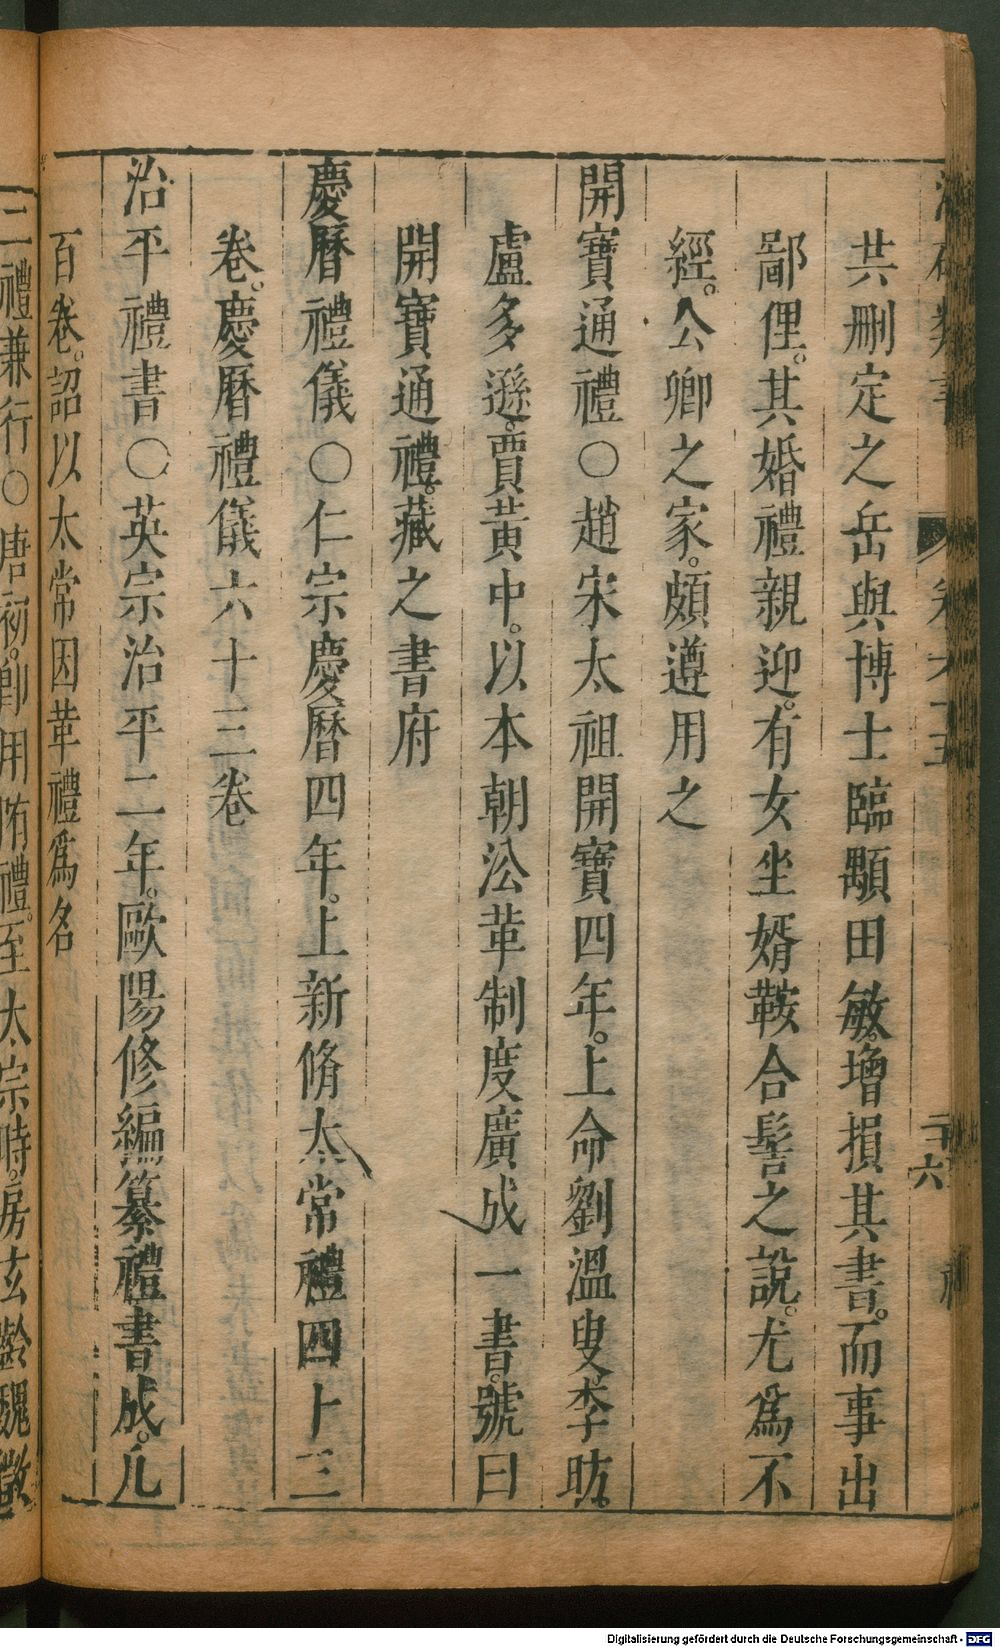 共刪定之岳與博士臨顒田敏。增損其書。而事出
鄙俚。其婚禮親迎。有女坐婿鞍合髻之說。尤為不
經。公卿之家。頗遵用之
開寶通禮○趙宋太祖開寶四年。上命劉溫叟李昉。
盧多遜。賈黄中。以本朝㳂革制度廣成一書。號曰
開寶通禮。藏之書府
慶曆禮儀○仁宗慶曆四年。上新脩太常禮四十三
卷。慶曆禮儀六十三卷
治平禮書○英宗治平二年。歐陽修編纂禮書成。凡
百卷。詔以太常因革禮爲名
二禮兼行○唐初。卽用隋禮。至太宗時。房玄齡魏徵
Digitalisierung gefördert durch die Deutsche Forschungsgemeinschaft - DFG